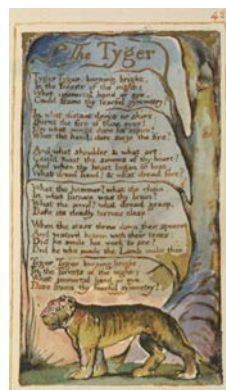 42
The Tyger
Tyger Tyger, burning bright,
In the forests of the night;
What immortal hand or eye,
Could frame thy fearful symmetry?
In what distant deeps or skies
Burnt the fire of thine eyes?
On what wings dare he aspire?
What the hand, dare sieze the fire?
And what shoulder, & what art,
Could twist the sinews of thy heart?
And when thy heart began to beat,
What dread hand? & what dread feet?
What the hammer? what the chain,
In what furnace was thy brain?
What the anvil? what dread grasp,
Dare its deadly terrors clasp?
When the stars threw down their spears
And water'd heaven with their tears:
Did he smile his work to see?
Did he who made the Lamb make thee?
Tyger Tyger burning bright,
In the forests of the night:
What immortal hand or eye,
Dare frame thy fearful symmetry?